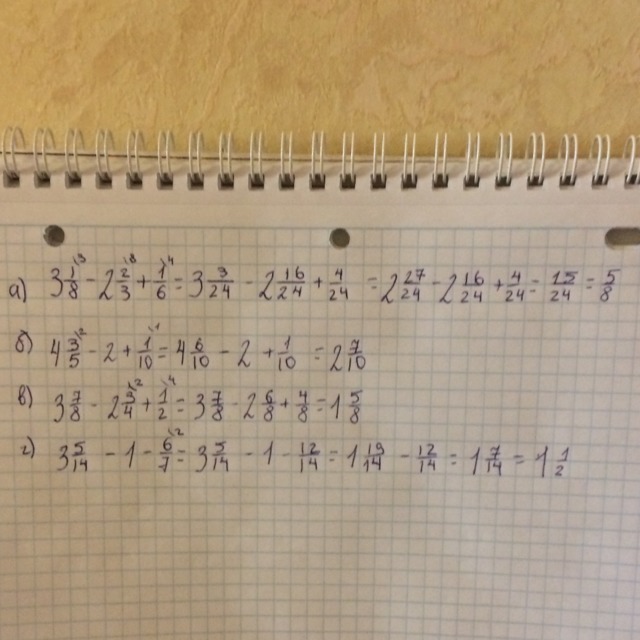 а) 3 1/8 \3 - 2 2/3 \8 + 1/6 \4 = 3 3/24 - 2 16/24 + 4/24 = 2 27/24 - 2 16/24 + 4/24 = 15/24 = 5/8
б) 4 3/5 \2 - 2 + 1/10 \1 = 4 6/10 - 2 + 1/10 = 2 7/10
в) 3 7/8 - 2 3/4 \2 + 1/2 \4 = 3 7/8 - 2 6/8 + 4/8 = 1 5/8
г) 3 5/14 - 1 - 6/7 \2 = 3 5/14 - 1 - 12/14 = 1 19/14 - 12/14 = 1 7/14 = 1 1/2